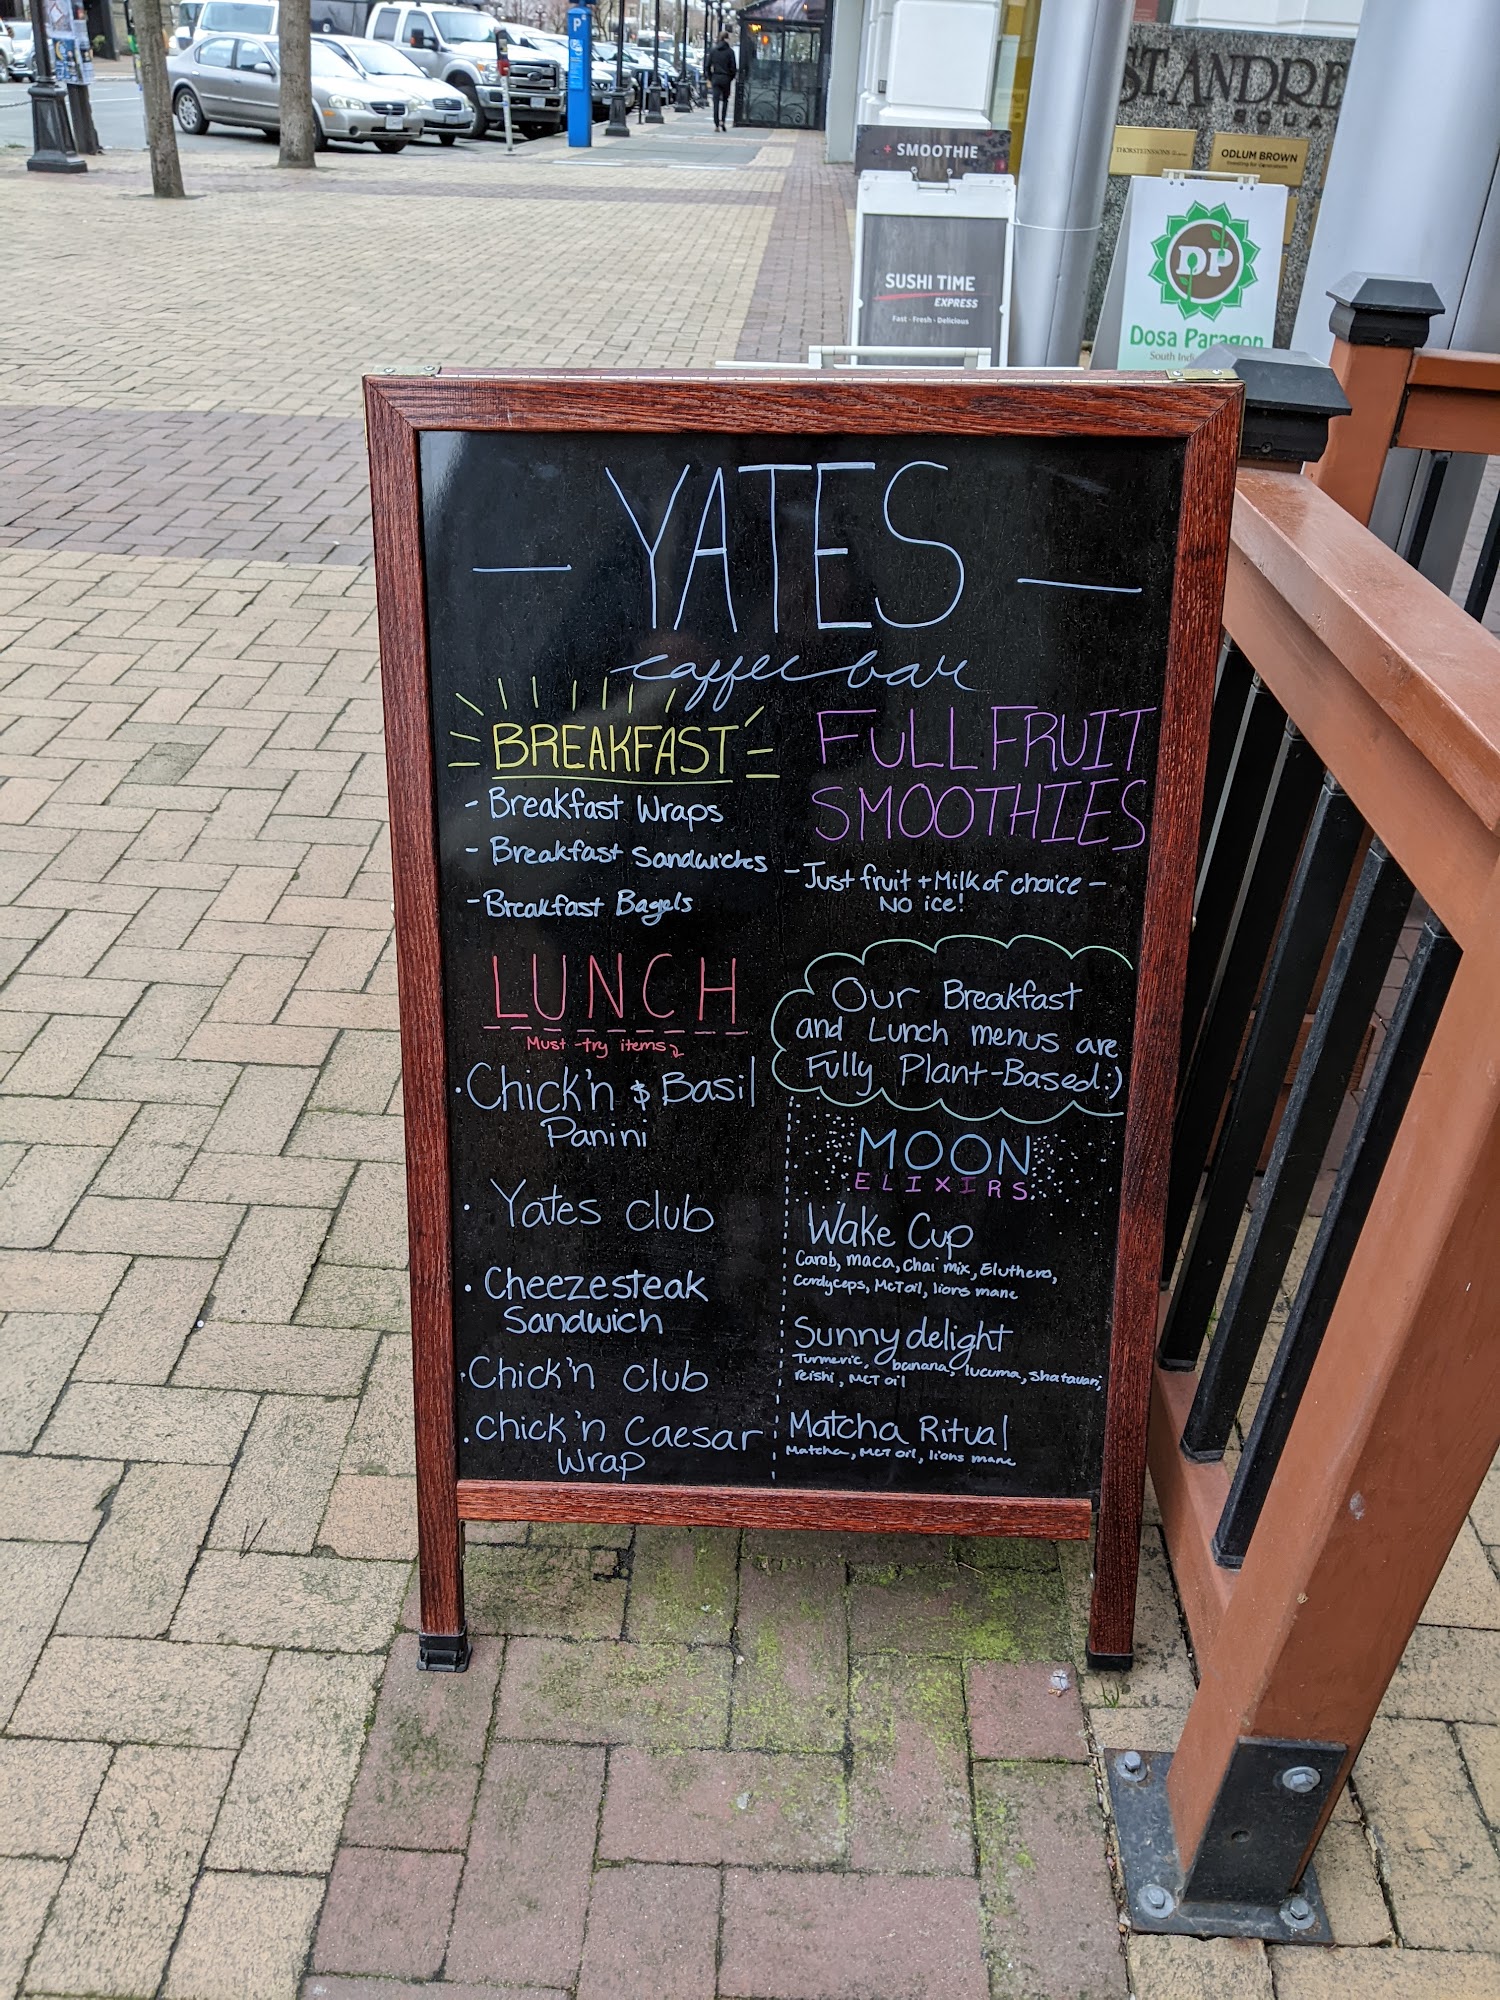 P
ST. ANDRE
SQUA
ODLUM BROWN
+ SMOOTHIE
SUSHI TIME
EXPRESS
Fast - Fresh - Delicious
DP
Dosa Paragon
South Indi
— YATES —
caffee bar
BREAKFAST
- Breakfast Wraps
- Breakfast Sandwiches
- Breakfast Bagels
LUNCH
Must-try items
• Chick'n & Basil
Panini
• Yates club
• Cheezesteak
Sandwich
• Chick'n club
• Chick'n Caesar
Wrap
FULL FRUIT
SMOOTHIES
- Just fruit + Milk of choice -
NO ice!
Our Breakfast
and Lunch menus are
Fully Plant-Based :)
MOON
ELIXIRS
Wake Cup
Carob, maca, chai mix, Eluthero,
Cordyceps, McT oil, lions mane
Sunny delight
Turmeric, banana, lucuma, shatavari,
reishi, MCT oil
Matcha Ritual
Matcha, MCT oil, lions mane